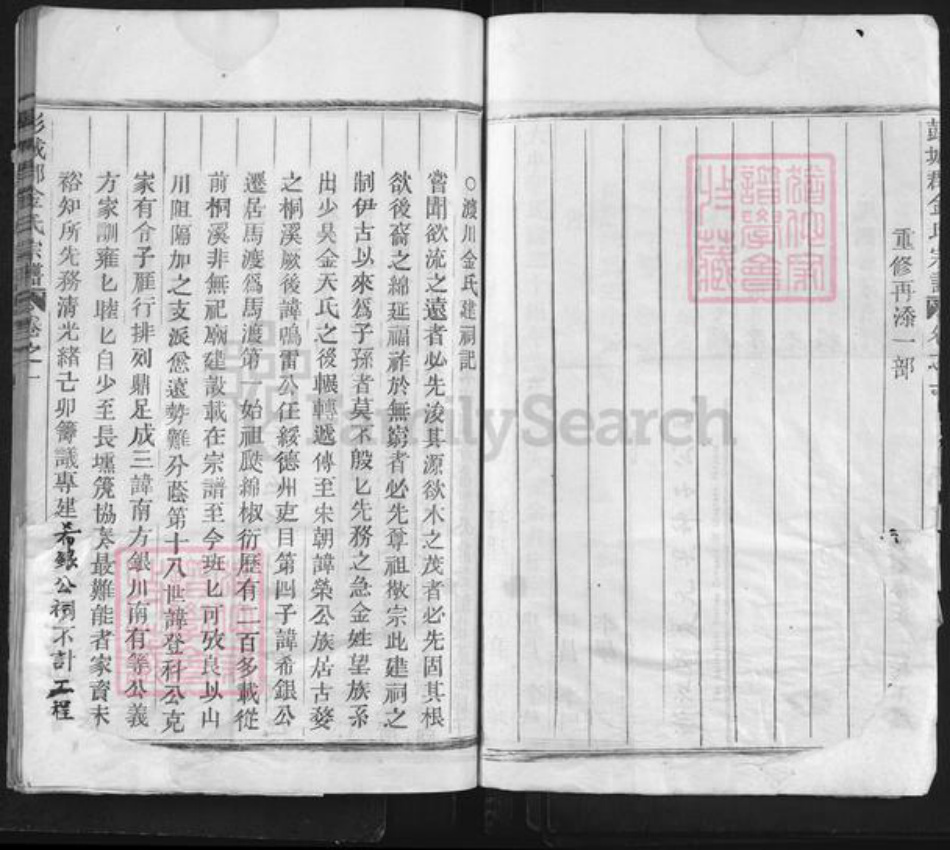 重修再添一部
○渡川金氏建祠記
嘗聞欲流之遠者必先浚其源欲木之茂者必先固其根
欲後裔之綿延福祚於無窮者必先尊祖敬宗此建祠之
制伊古以來爲子孫者莫不殷匕先務之急金姓望族系
出少昊金天氏之後輾轉遞傳至宋朝諱榮公族居古婺
之桐溪厥後諱鳴雷公任綏德州吏目第四子諱希銀公
遷居馬渡爲馬渡第一始祖瓞綿椒衍歷有二百多載從
前桐溪非無祀廟建設載在宗譜至今班匕可攷良以山
川阻隔加之支派愈遠勢難分蔭第十八世諱登科公克
家有令子雁行排列鼎足成三諱南方銀川南有等公義
方家訓雍匕睦匕自少至長壎篪協奏最難能者家資未
裕知所先務清光緒己卯籌議專建希銀公祠不計工程
彭城郡金氏宗譜 卷之一
FamilySearch